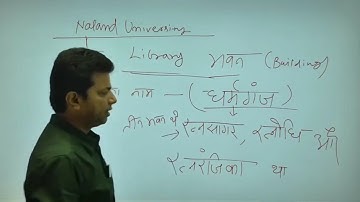 Naland University
Library भवन (Building)
नाम — (धर्मगंज)
तीन भवन थे → रत्नसागर, रत्नोधि औ
रत्नरंजिका था